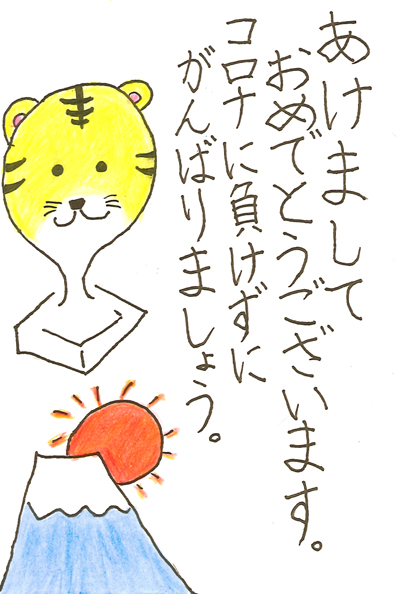 あけまして
おめでとうございます。
コロナに負けずに
がんばりましょう。